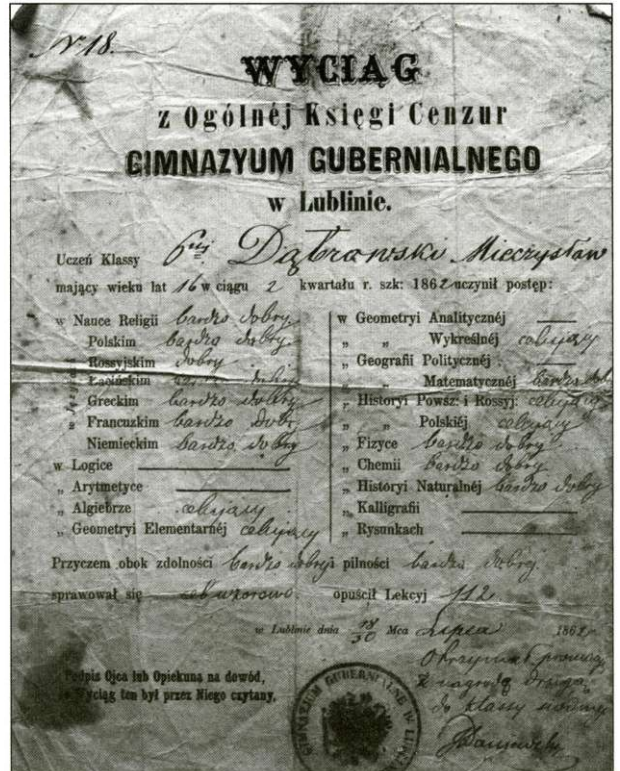 N 18.
WYCIĄG
z Ogólnéj Księgi Cenzur
GIMNAZYUM GUBERNIALNEGO
w Lublinie.
Uczeń Klassy 6tej Dąbrowski Mieczysław
mający wieku lat 16 w ciągu 2 kwartału r. szk: 1862 uczynił postęp:
w Nauce Religii bardzo dobry
Polskim bardzo dobry.
Rossyjskim dobry
Łacińskim dobry
Greckim bardzo dobry
Francuzkim bardzo dobr.
Niemieckim bardzo dobry
w Logice
„ Arytmetyce
„ Algiebrze celujący
„ Geometryi Elementarnéj celujący
w Geometryi Analitycznéj
„ „ Wykreślnéj celujący
„ Geografii Politycznéj
„ „ Matematycznéj bardzo dob
„ Historyi Powsz: i Rossyj: celujący
„ „ Polskiéj celujący
„ Fizyce bardzo dobry
„ Chemii bardzo dobry
„ Historyi Naturalnéj bardzo dobry
„ Kalligrafii
„ Rysunkach
Przyczem obok zdolności bardzo dobryj pilności bardzo dobrej.
sprawował się wzorowo opuścił Lekcyj 112
w Lublinie dnia 18/30 Mca Lipca 1862
Otrzymał promocyą
z nagrodą drugą
do klassy
Podpis Ojca lub Opiekuna na dowód,
Wyciąg ten był przez Niego czytany.
GIMNAZIUM GUBERNIALNE W LUBLINIE